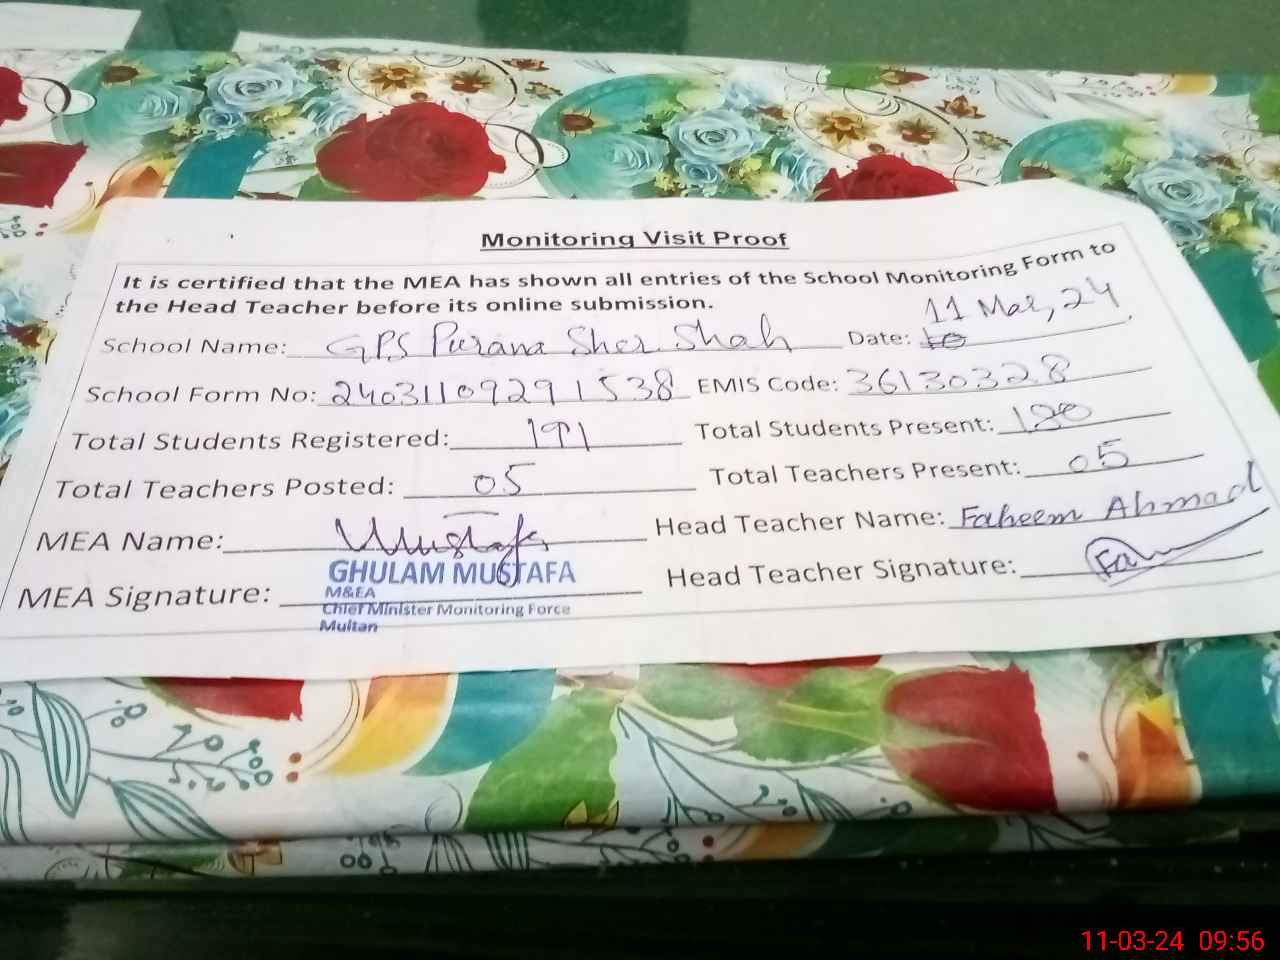 Monitoring Visit Proof
It is certified that the MEA has shown all entries of the School Monitoring Form to
the Head Teacher before its online submission.
School Name: GPS Purana Sher Shah Date: 11 Mar, 24
School Form No: 24031109291538 EMIS Code: 36130328
Total Students Registered: 191 Total Students Present: 180
Total Teachers Posted: 05 Total Teachers Present: 05
MEA Name: Mustafa Head Teacher Name: Faheem Ahmad
MEA Signature: Head Teacher Signature:
GHULAM MUSTAFA
M&EA
Chief Minister Monitoring Force
Multan
11-03-24 09:56